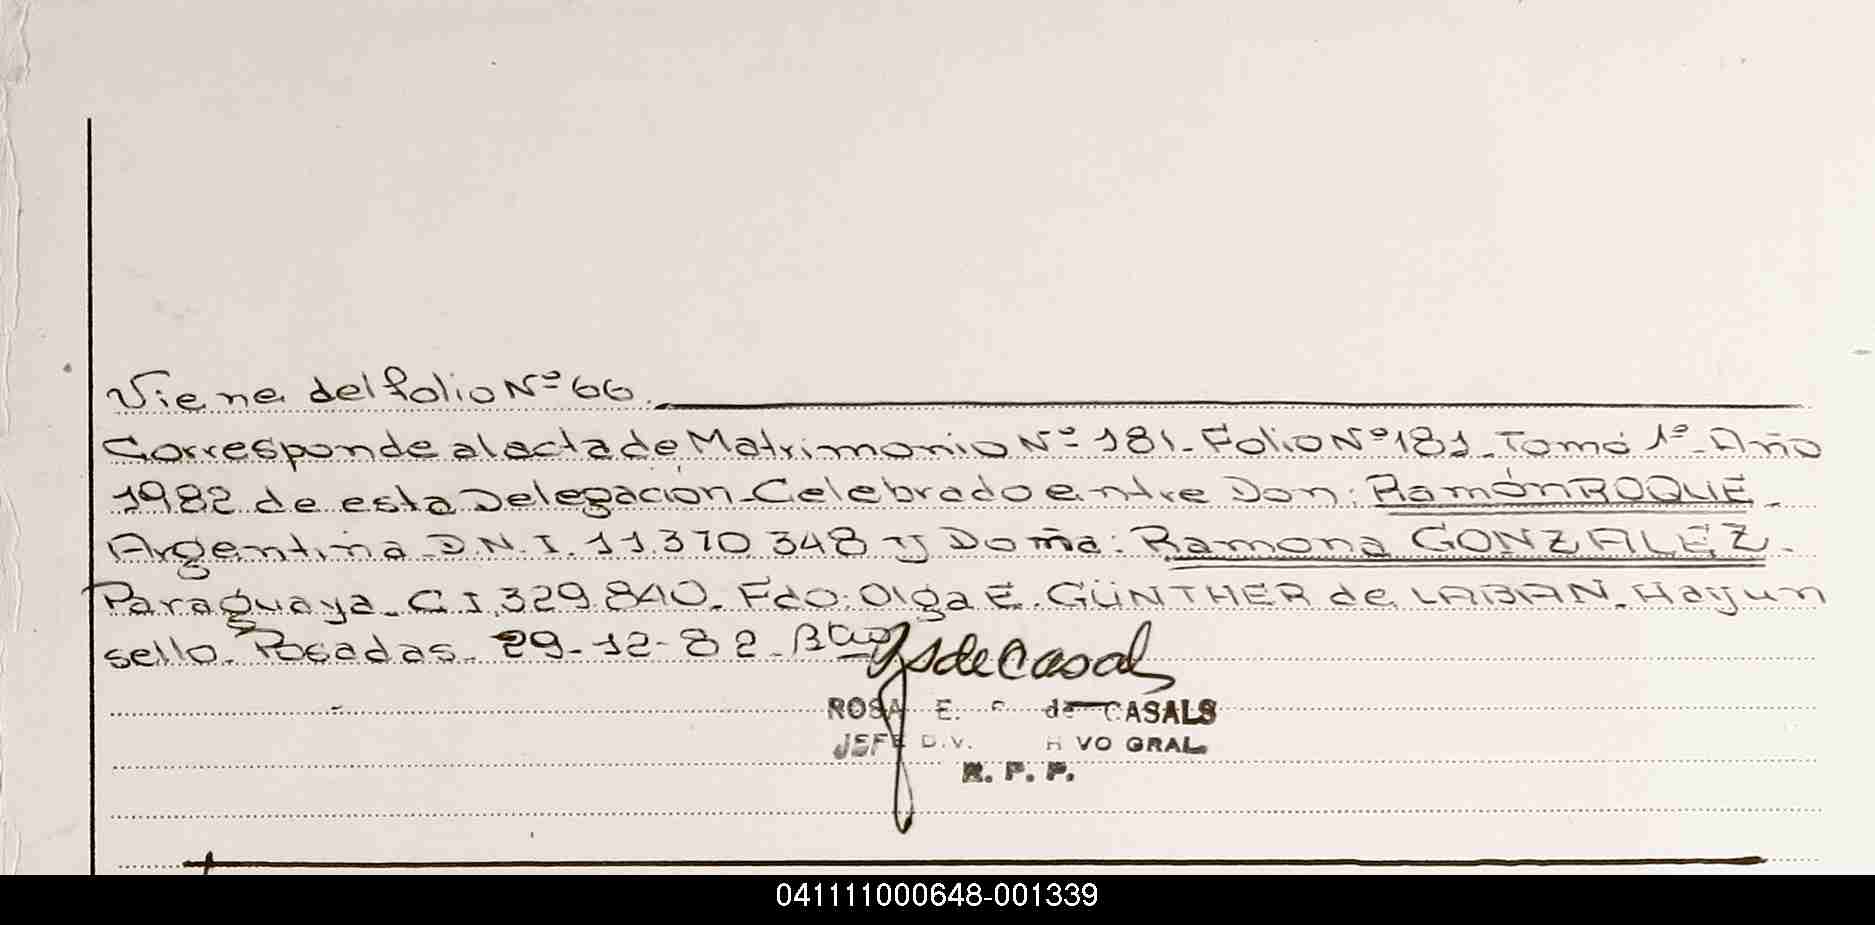 Viene del folio Nº 66.
Corresponde al acta de Matrimonio Nº 181- Folio Nº 181- Tomo 1º- Año
1982 de esta Delegación- Celebrado entre Don: Ramón ROQUE-
Argentina D.N.I. 11.370 348 y Doña: Ramona GONZALEZ-
Paraguaya- C.I. 329.840- Fdo: Olga E. GÜNTHER de LABAN- Hay un
sello- Posadas- 29-12-82-
de Casals
ROSA E. de CASALS
JEFE VO GRAL.
R. P. P.
041111000648-001339